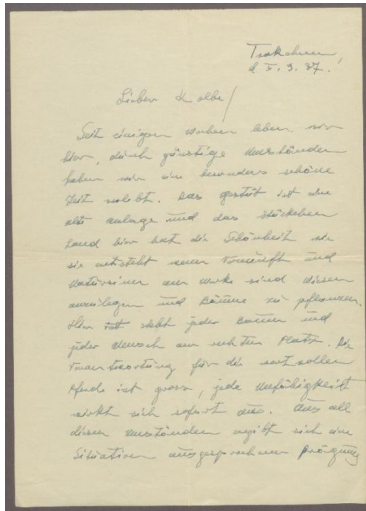 Trakehnen,
d. 5. 9. 37.
Lieber Kolbe!
Seit einigen Wochen leben wir
hier, durch günstige Umstände
haben wir eine besonders schöne
Zeit erlebt. Das Gestüt ist eine
alte Anlage und das Stückchen
Land hier hat die Schönheit wie
sie entsteht wenn Vernunft und
Natursinn am Werke sind Wiesen
anzulegen und Bäume zu pflanzen.
Hier steht jeder Baum und
jeder Mensch am rechten Platz. Die
Verantwortung für die wertvollen
Pferde ist gross, jede Unfähigkeit
wirkt sich sofort aus. Aus all
diesen Umständen ergibt sich eine
Situation ausgesprochener Prägung